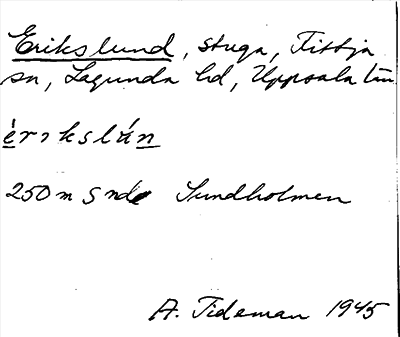 Erikslund, stuga, Fittja
sn, Lagunda hd, Uppsala län
èrıkslún
250 m S nde Sundholmen
A. Tideman 1945